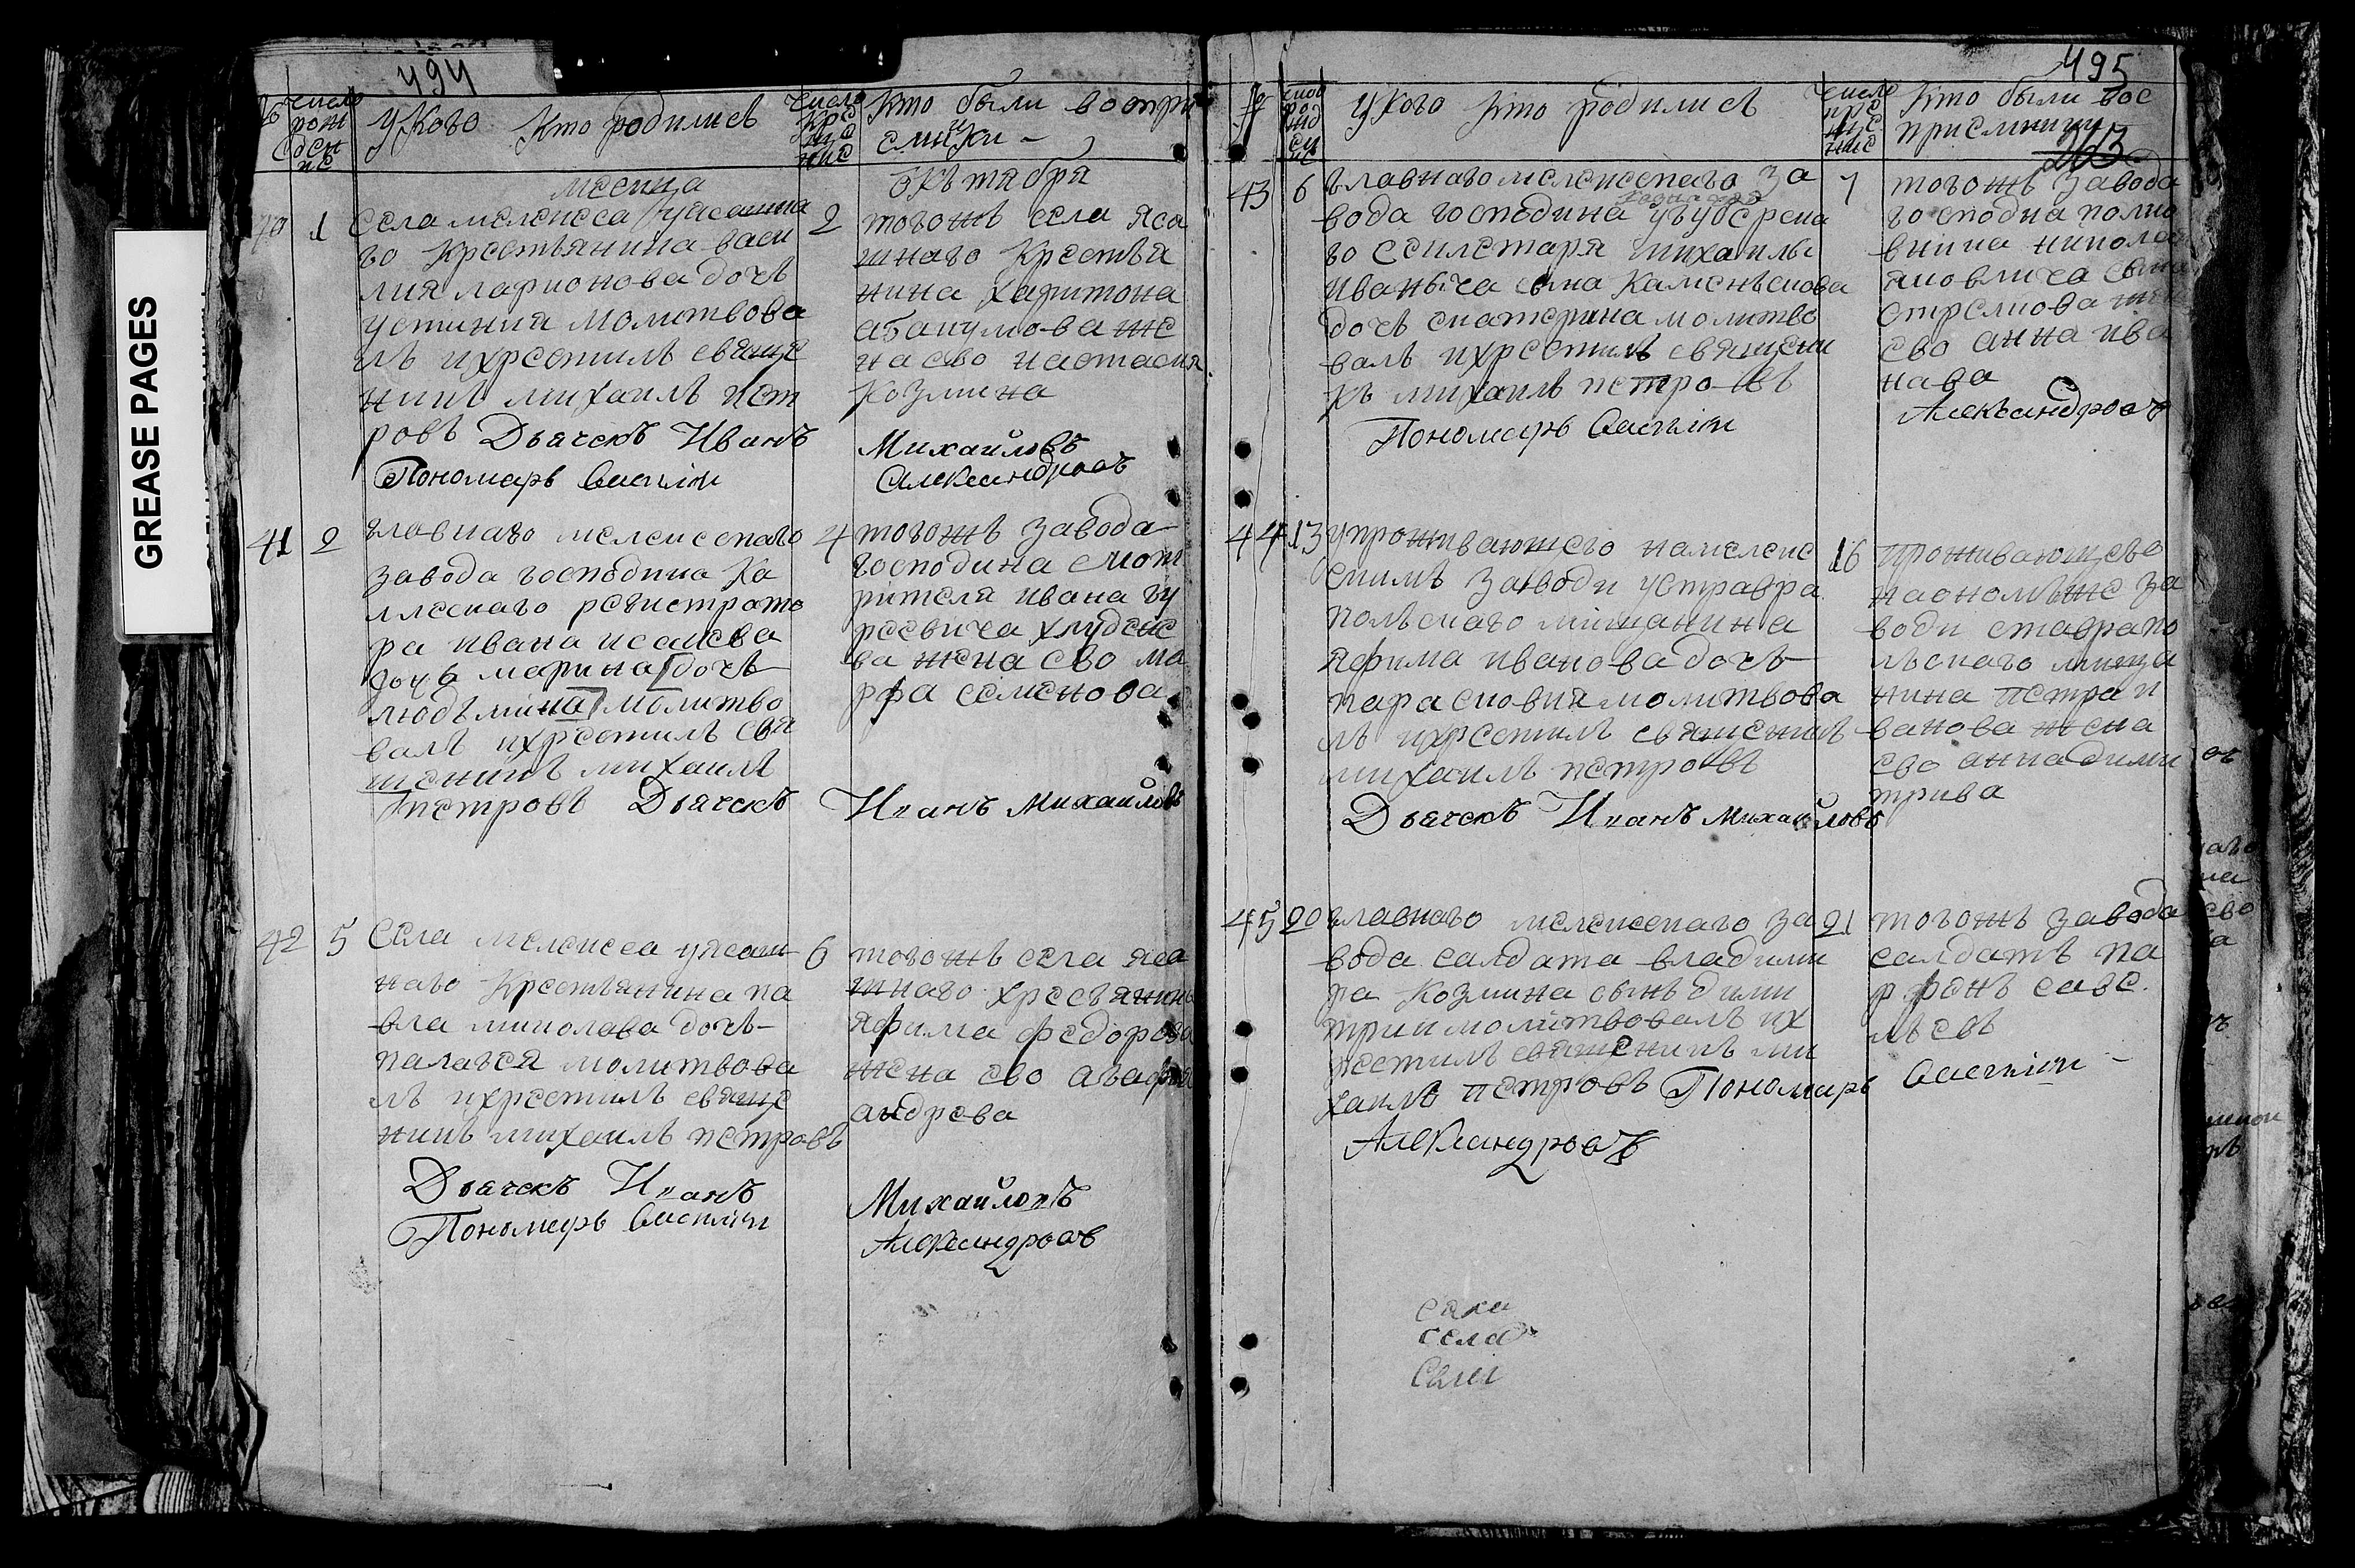 GREASE PAGES
494
число
рож
ден
ие
У Кого Кто родились
число
кре
ще
ние
Кто были воспри
емники
месяца
Октября
40 1
села мелекесса уясашна
го крестьянина васи
лия ларионова дочь
устиния молитвова
лъ икрестилъ свяще
никъ михаилъ пет
ровъ Дьячекъ Иванъ
Пономарь Василiи
2
тогожъ села яса
шнаго Крестья
нина харитона
абакумова же
на ево настасия
Козмина
Михаиловъ
Александровъ
41 2
главнаго мелекескаго
завода господина Ка
ллескаго регистрато
ра ивана исаиева
дочь марина дочь
людьмина молитво
валъ икрестилъ свя
щеникъ михаилъ
петровъ Дьячекъ
4
тогожъ завода
господина смот
рителя ивана гу
реевича хлудене
ва жена ево ма
рфа семенова
Иванъ Михаиловъ
42 5
села мелекесса уясаш
наго Крестьянина па
вла миколава дочь
палагея молитвова
лъ икрестилъ свяще
никъ михаилъ петровъ
Дьячекъ Иванъ
Пономарь Василiи
6
тогожъ села яса
шнаго хрестянина
яфима федорова
жена ево агафья
андрева
Михаиловъ
Александровъ
495
число
рож
де
ние
У Кого Кто родились
число
кре
ще
ние
Кто были вос
приемники
203
43 6
главнаго мелекескаго за
вода господина угубернска
го секлетаря михаилы
иваныча сына Каменьскова
дочь екатерина молитво
валъ икрестилъ священи
къ михаилъ петровъ
Пономарь Василiи
7
тогожъ завода
господина полко
вника николая
яковлича сына
стрелкова жена
ево анна ива
нава
Александровъ
44 13
упроживающего намелеке
скимъ заводи уставра
польскаго мищанина
яфима иванова дочь
парасковия молитвова
лъ икрестилъ свяшеникъ
михаилъ петровъ
Дьячекъ Иванъ Михаиловъ
16
проживающева
наономъже за
води ставрапо
льскаго мища
нина петра и
ванова жена
ево анна дими
трива
45 20
главнаго мелекескаго за
вода салдата владими
ра Козмина сынъ дими
трии молитвовалъ их
рестилъ свяшеникъ ми
хаилъ петровъ Пономарь
Александровъ
21
тогожъ завода
салдатъ па
рфенъ саве
льевъ
Василiи
села